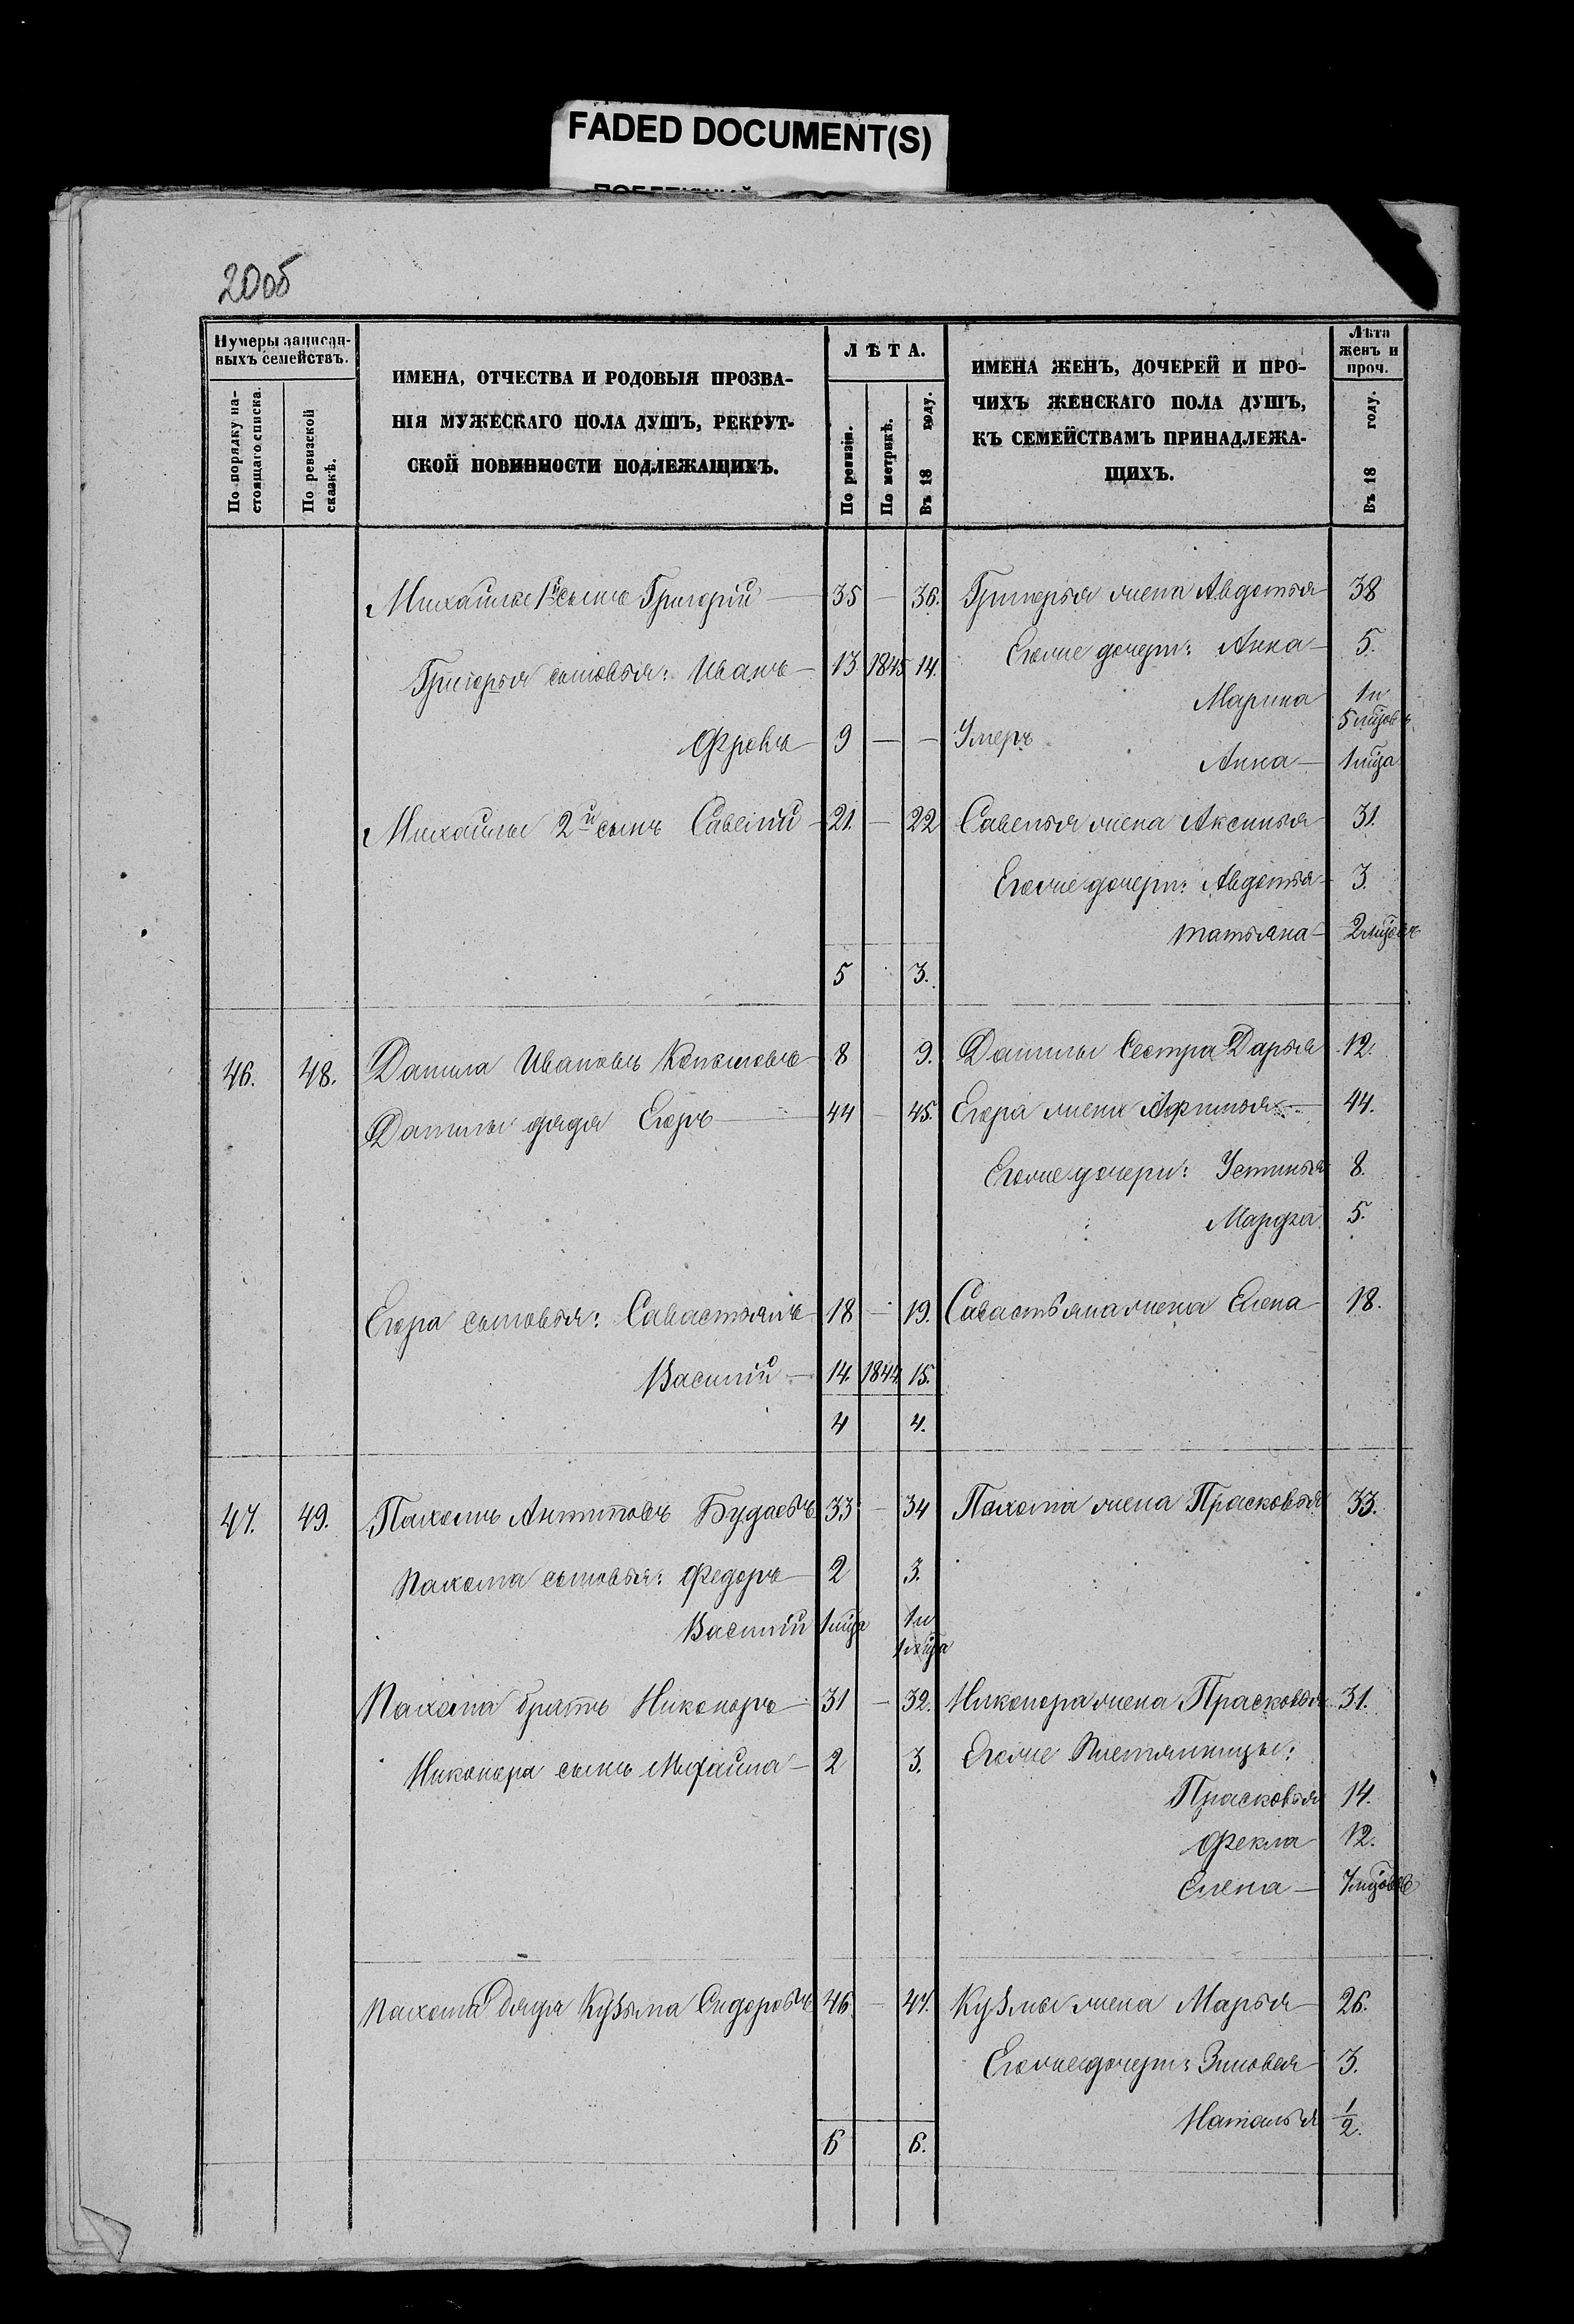 FADED DOCUMENT(S)
20об
Нумеры записан-
ныхъ семействъ.
По порядку на-
стоящаго списка.
По ревизской
сказкѣ.
ИМЕНА, ОТЧЕСТВА И РОДОВЫЯ ПРОЗВА-
НІЯ МУЖЕСКАГО ПОЛА ДУШЪ, РЕКРУТ-
СКОЙ ПОВИННОСТИ ПОДЛЕЖАЩИХЪ.
ЛѢТА.
По ревизіи.
По метрикѣ.
Въ 18 году.
ИМЕНА ЖЕНЪ, ДОЧЕРЕЙ И ПРО-
ЧИХЪ ЖЕНСКАГО ПОЛА ДУШЪ,
КЪ СЕМЕЙСТВАМЪ ПРИНАДЛЕЖА-
ЩИХЪ.
Лѣта
женъ и
проч.
Въ 18 году.
Михайлы 1й сынъ Григорій — 35 — 36. Григорья жена Авдотья 38
Его же дочери: Анна — 5.
Григорья сыновья: Иванъ — 13 1845 14.
Марина 1 и
5 мцовъ
Фролъ — 9 — — Умеръ
Анна — 1 мца
Михайлы 2й сынъ Савелій — 21. — 22 Савелья жена Аксинья 31.
Его же дочери: Авдотья — 3.
Татьяна — 2 мцовъ
5 3.
46. 48. Данила Ивановъ 8 9. Данилы Сестра Дарья 12.
Данилы дядя Егоръ — 44 — 45. Егора жена Афимья — 44.
Его же дочери: Устинья 8.
Марфа 5.
Егора сыновья: Савастьянъ 18 — 19. Савастьяна жена Елена 18.
Василій — 14. 1844 15.
4 4.
47. 49. Пахомъ Антиповъ Будаевъ 33 — 34 Пахома жена Прасковья 33.
Пахома сыновья: Федоръ — 2 3.
Василій 1 мца 1 и
1 мца
Пахома братъ Никоноръ — 31 — 32. Никонора жена Прасковья 31.
Никонора сынъ Михайла — 2 3. Его же Племянницы:
Прасковья 14.
Фекла 12.
Елена — 7 мцовъ
Пахома дядя Кузьма Сидоровъ 46 — 47. Кузмы жена Марья — 26.
Его же дочери: Зиновея 3.
Наталья 1/2.
6 6.